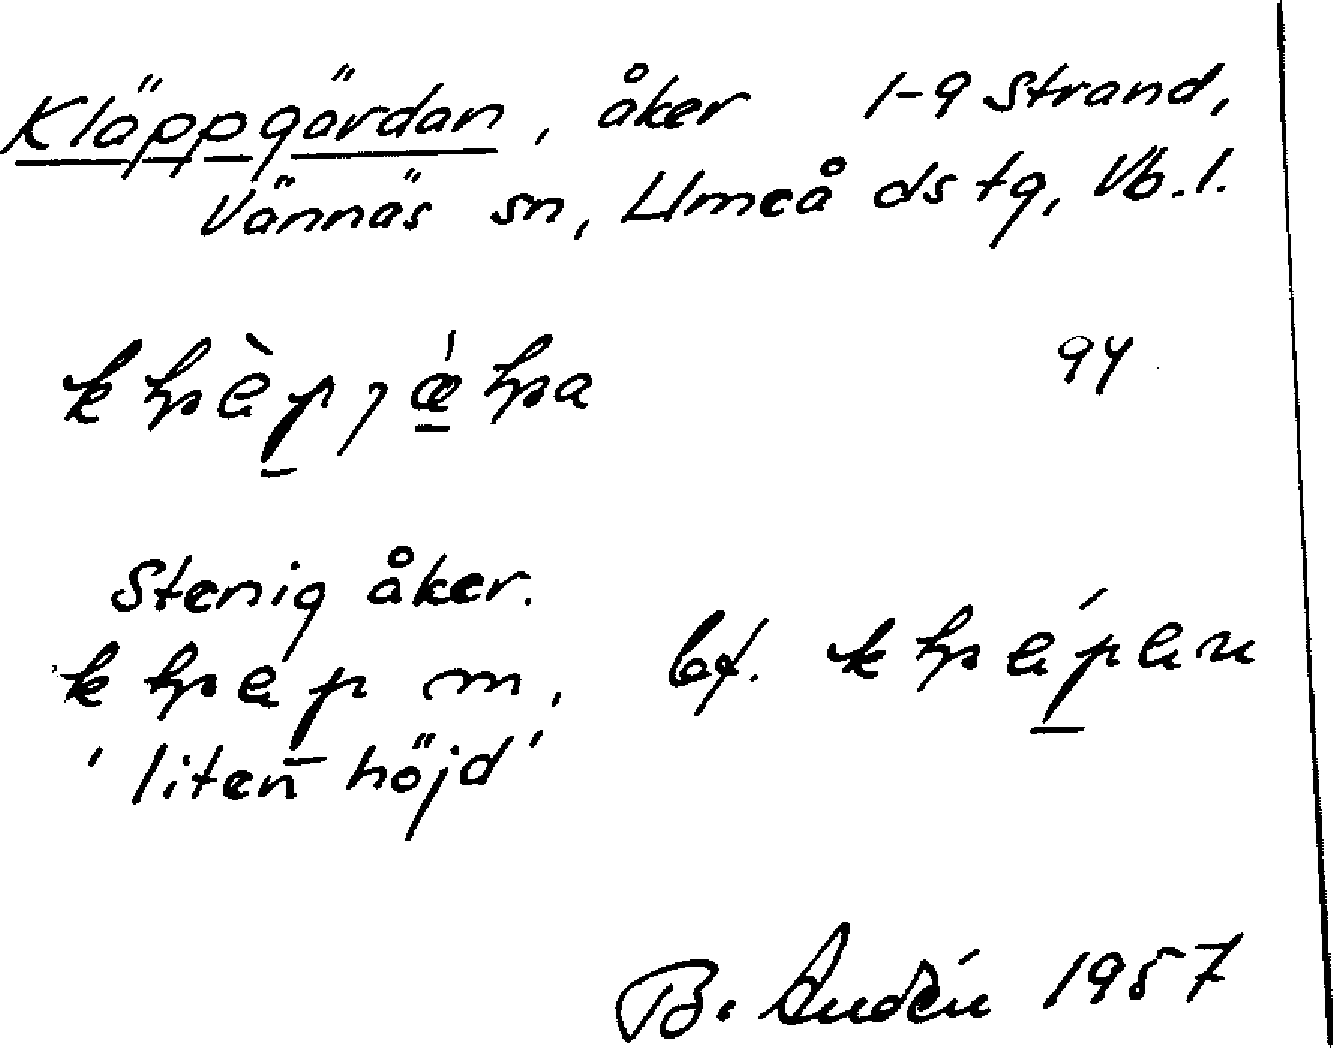 Kläppgärdan, åker 1-9 Strand,
Vännäs sn, Umeå dstg, Vb.l.
94
Stenig åker.
m. bf.
'liten höjd'
B. Andén 1957